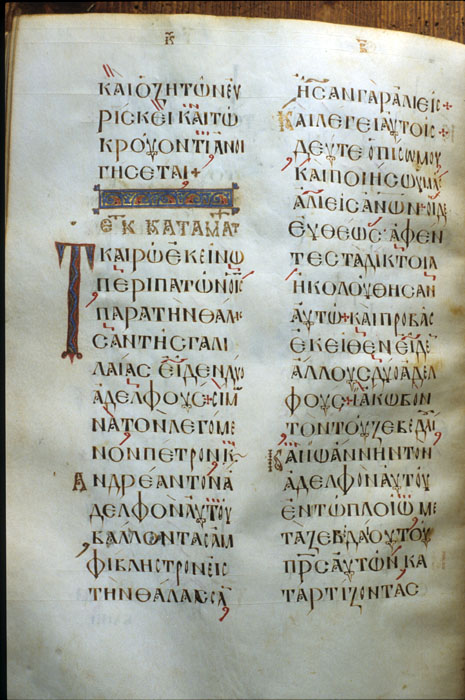 ΚΑΙΟΖΗΤΩΝΕΥ
ΡΙΣΚΕΙΚΑΙΤΩ
ΚΡΟΥΟΝΤΙΑΝΟΙ
ΓΗΣΕΤΑΙ+
ΕΚ ΚΑΤΑΜΑΤ
ΤΚΑΙΡΩΕΚΕΙΝΩ
ΠΕΡΙΠΑΤΩΝΟΙΣ
ΠΑΡΑΤΗΝΘΑΛΑΣ
ΣΑΝΤΗΣΓΑΛΙ
ΛΑΙΑΣΕΙΔΕΝΔΥΟ
ΑΔΕΛΦΟΥΣ+ΣΙΜ
ΝΑΤΟΝΛΕΓΟΜΕ
ΝΟΝΠΕΤΡΟΝΚ
ΑΝΔΡΕΑΝΤΟΝΑ
ΔΕΛΦΟΝΑΥΤΟΥ
ΒΑΛΛΟΝΤΑΣΑΜ
ΦΙΒΛΗΣΤΡΟΝΕΙΣ
ΤΗΝΘΑΛΑΣΣΑ
ΗΣΑΝΓΑΡΑΛΙΕΙΣ+
ΚΑΙΛΕΓΕΙΑΥΤΟΙΣ+
ΔΕΥΤΕΟΠΙΣΩΜΟΥ
ΚΑΙΠΟΙΗΣΩΥΜΑΣ
ΑΛΙΕΙΣΑΝΩΝ+ΟΙΔΕ
ΕΥΘΕΩΣ·ΑΦΕΝ
ΤΕΣΤΑΔΙΚΤΟΙΑ
ΗΚΟΛΟΥΘΗΣΑΝ
ΑΥΤΩ+ΚΑΙΠΡΟΒΑΣ
ΕΚΕΙΘΕΝΕΙΔΕ
ΑΛΛΟΥΣΔΥΟΑΔΕΛ
ΦΟΥΣ+ΙΑΚΩΒΟΝ
ΤΟΝΤΟΥΖΕΒΕΔΑΙ
ΚΑΙΙΩΑΝΝΗΝΤΟΝ
ΑΔΕΛΦΟΝΑΥΤΟΥ
ΕΝΤΩΠΛΟΙΩΜΕ
ΤΑΖΕΒΔΑΟΥΤΟΥ
ΠΡΣΑΥΤΩΝΚΑ
ΤΑΡΤΙΖΟΝΤΑΣ